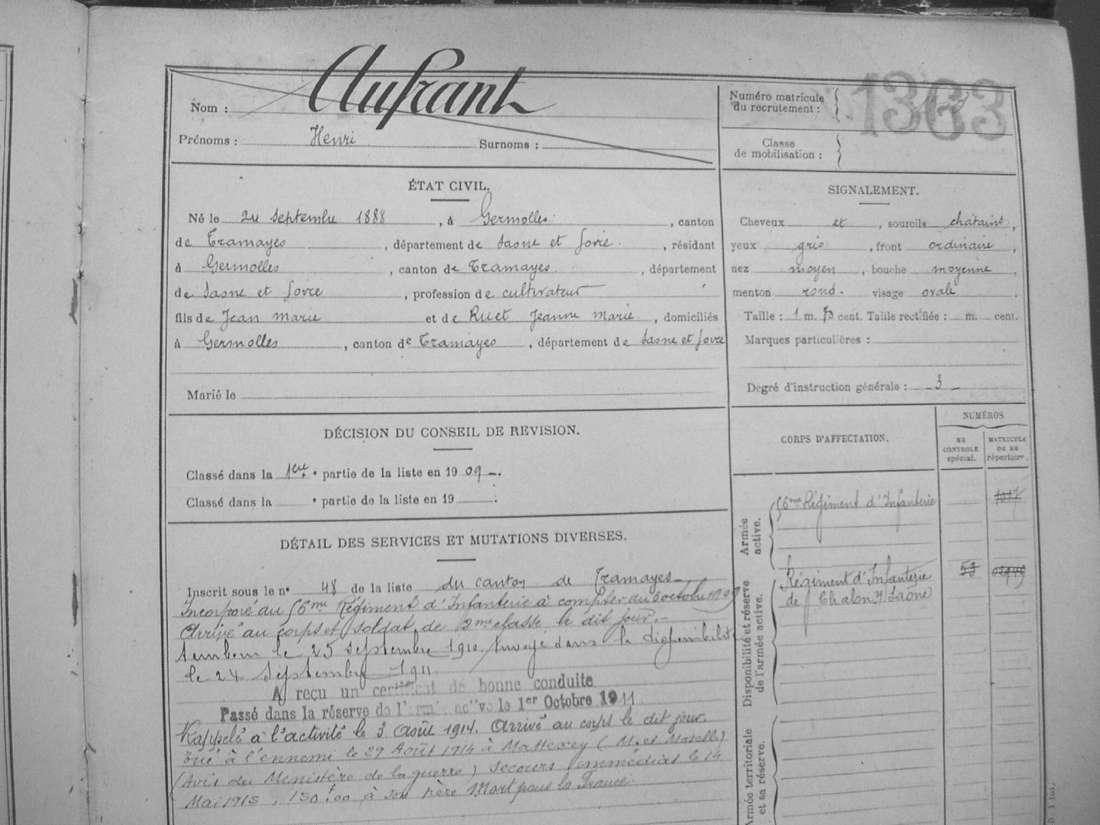 Nom : Aufrant
Prénoms : Henri Surnoms :
Numéro matricule du recrutement : 1363
Classe de mobilisation :
ÉTAT CIVIL.
Né le 24 septembre 1888, à Germolles, canton
de Tramayes, département de Saone et Loire, résidant
à Germolles, canton de Tramayes, département
de Saone et Loire, profession de cultivateur
fils de Jean Marie et de Ruet Jeanne Marie, domiciliés
à Germolles, canton de Tramayes, département de Saone et Loire
Marié le
SIGNALEMENT.
Cheveux et, sourcils chatains,
yeux gris, front ordinaire,
nez moyen, bouche moyenne
menton rond. visage ovale.
Taille : 1 m. 73 cent. Taille rectifiée : m. cent.
Marques particulières :
Degré d'instruction générale : 3
DÉCISION DU CONSEIL DE REVISION.
Classé dans la 1ere partie de la liste en 1909.
Classé dans la partie de la liste en 19 .
DÉTAIL DES SERVICES ET MUTATIONS DIVERSES.
Inscrit sous le n° 48 de la liste du canton de Tramayes
Incorporé au 56me Régiment d'Infanterie à compter du octobre 1909
Arrivé au corps et soldat de 2me classe le dit jour.
le 25 septembre 1910 Envoyé dans la disponibilité
le 24 septembre 1911.
A reçu un certificat de bonne conduite
Passé dans la réserve de l'armée active le 1er Octobre 1911
Rappelé à l'activité le 3 Août 1914. Arrivé au corps le dit jour.
Tué à l'ennemi le 29 Août 1914 à Mattexey (M. et Moselle)
(Avis du Ministère de la guerre) Secours immédiat le 14
Mai 1915, 150f00 à son père Mort pour la France.
CORPS D'AFFECTATION.
NUMÉROS
AU CONTROLE spécial.
MATRICULE OU AU répertoire.
Armée active.
56me Régiment d'Infanterie
Disponibilité et réserve de l'armée active.
Régiment d'Infanterie
de Chalon s/ Saône
53
Armée territoriale et sa réserve.